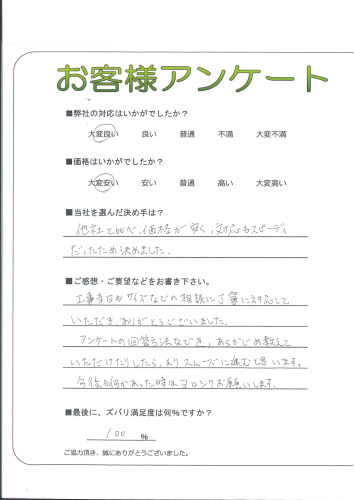 お客様アンケート
■弊社の対応はいかがでしたか？
大変良い 良い 普通 不満 大変不満
■価格はいかがでしたか？
大変安い 安い 普通 高い 大変高い
■当社を選んだ決め手は？
他社と比べ、価格が安く、対応もスピーディ
だったため決めました。
■ご感想・ご要望などをお書き下さい。
工事当日もサイズなどの相談に丁寧に対応して
いただき、ありがとうございました。
アンケートの回答方法などでき、あらかじめ教えて
いただけたりしたら、よりスムーズに進むと思います。
今後も何かあった時はヨロシクお願いします。
■最後に、ズバリ満足度は何％ですか？
100 %
ご協力頂き、誠にありがとうございました。